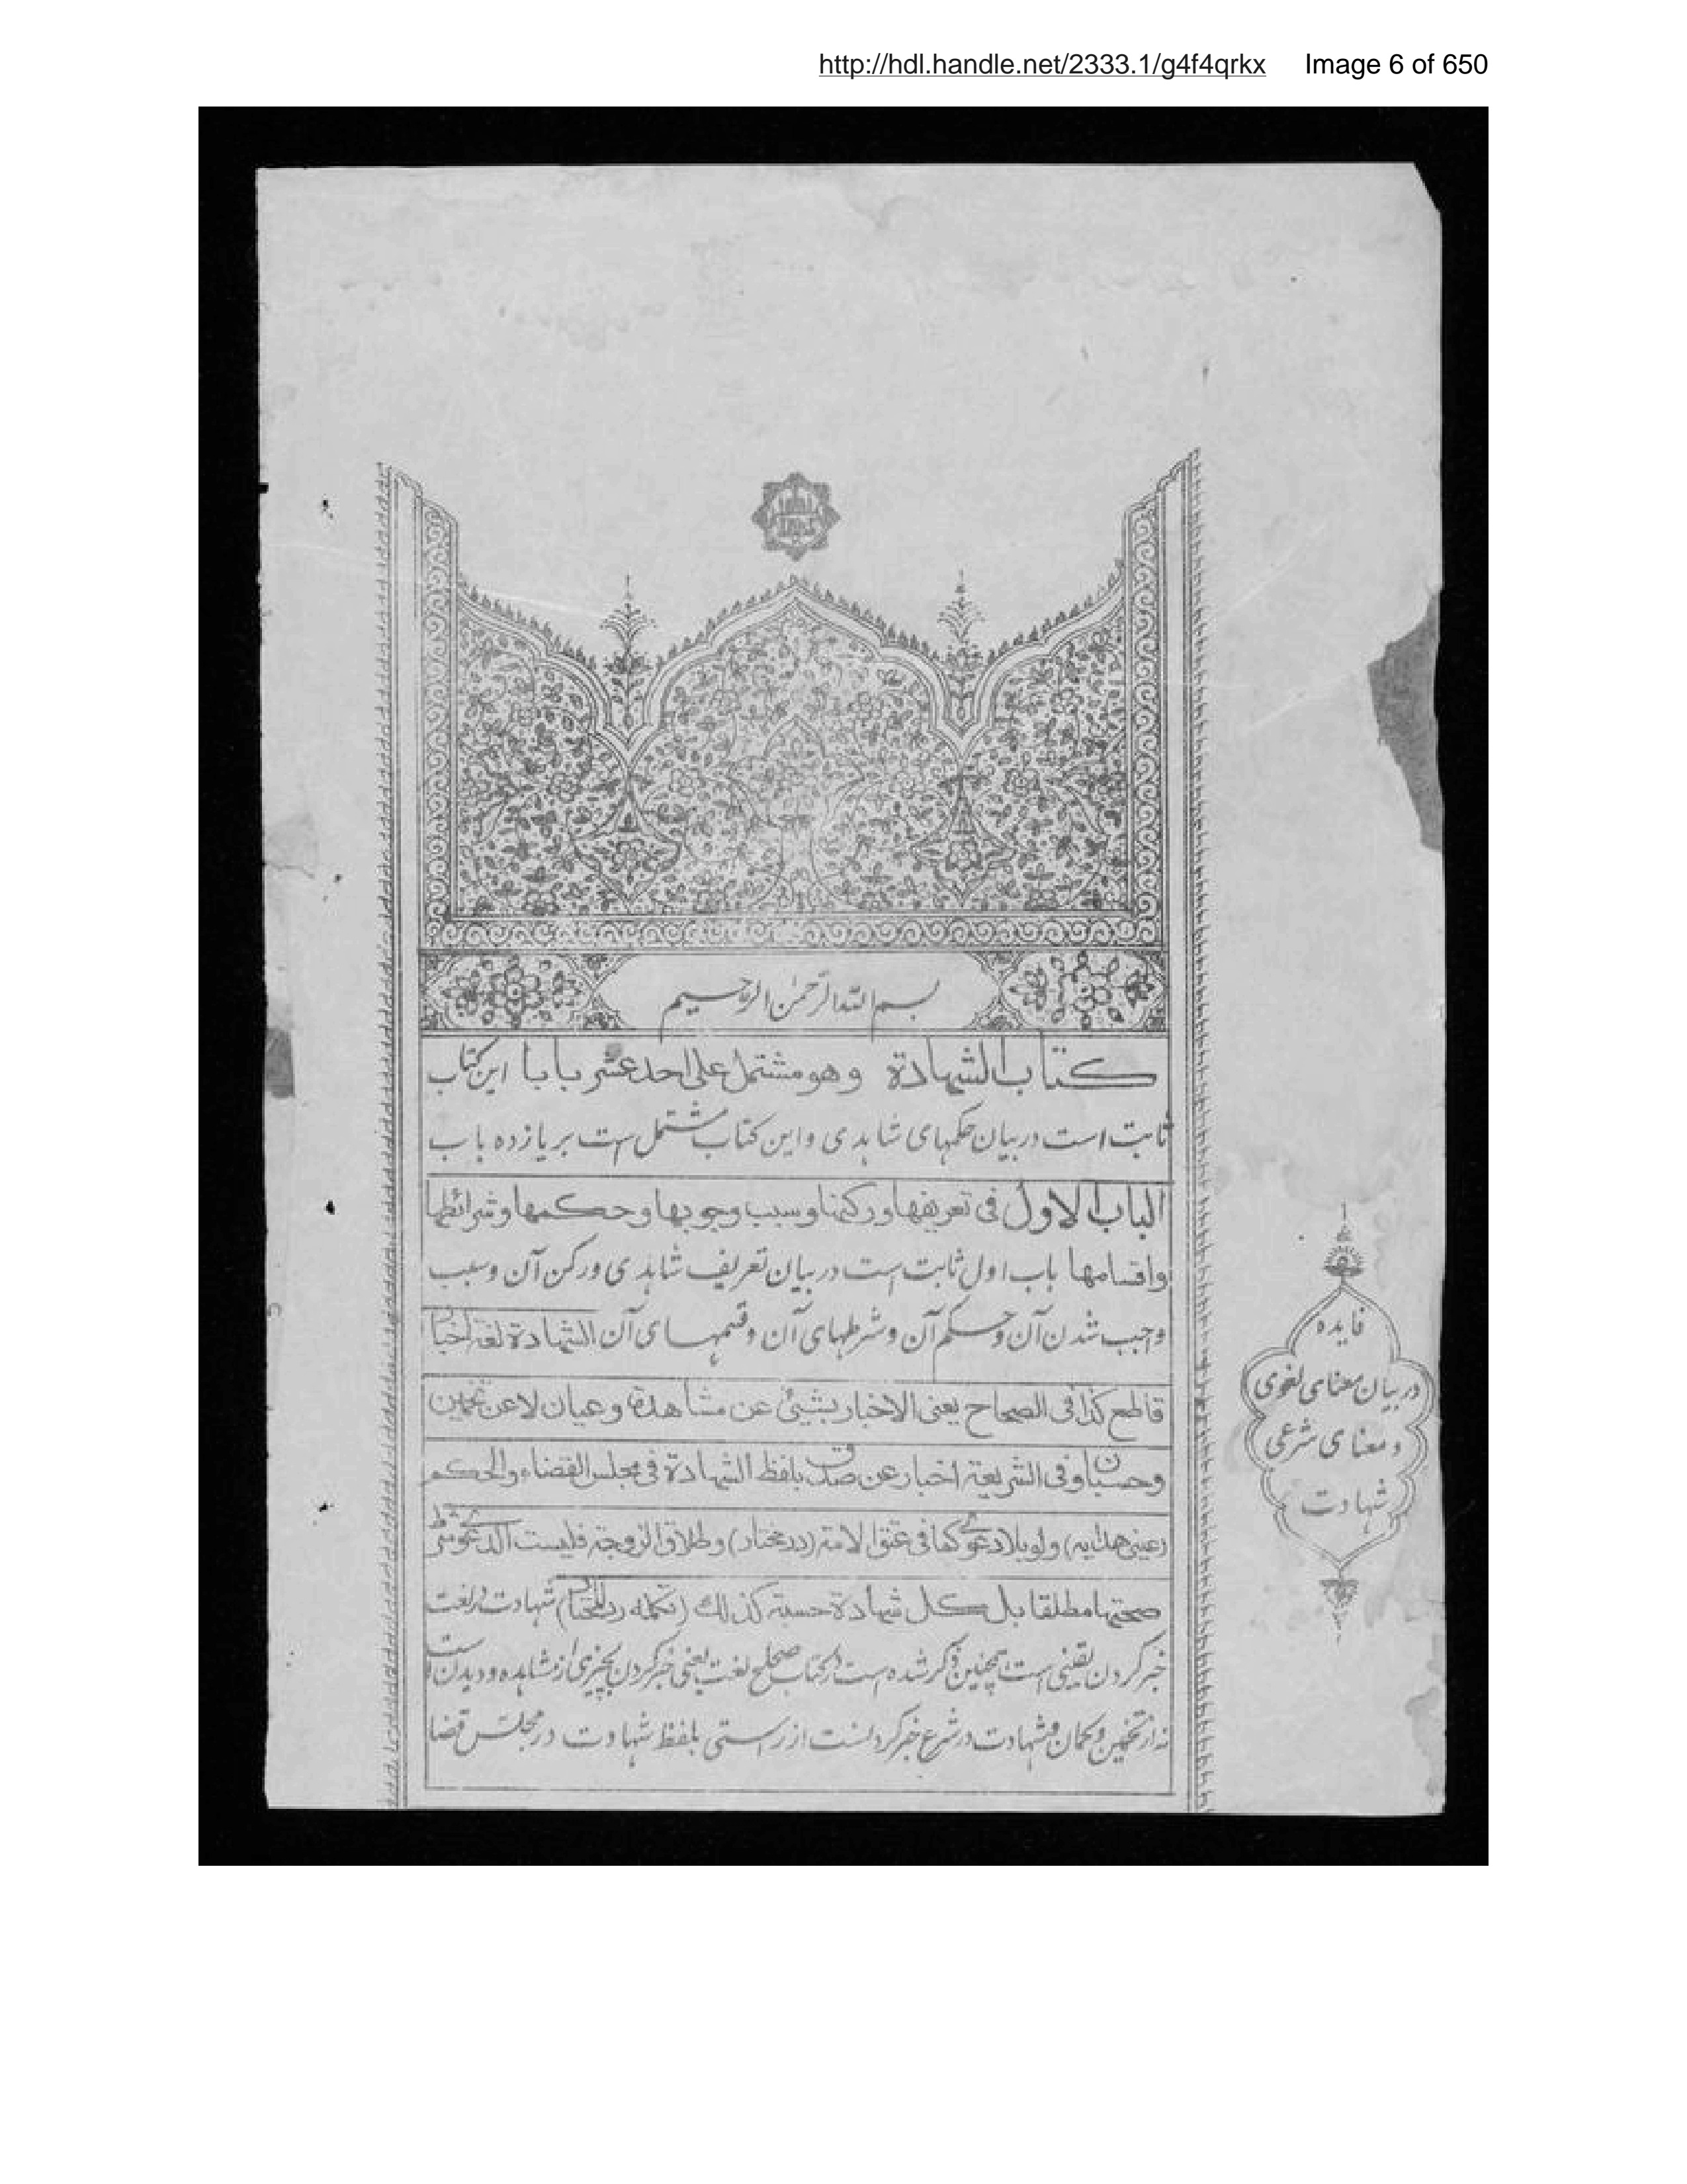 http://hdl.handle.net/2333.1/g4f4qrkx Image 6 of 650
بسم الله الرحمن الرحیم
کتاب الشهادة وهو مشتمل علی احد عشر بابا این کتاب
ثابت است در بیان حکمهای شاهدی و این کتاب مشتمل است بر یازده باب
الباب الاول فی تعریفها ورکنها وسبب وجوبها وحکمها وشرائطها
واقسامها باب اول ثابت است در بیان تعریف شاهدی و رکن آن و سبب
واجب شدن آن و حکم آن و شرطهای آن و قسمهای آن الشهادة لغة اخبار
قاطع کذا فی الصحاح یعنی الاخبار بشیئ عن مشاهدة وعیان لا عن تخمین
وحسبان وفی الشریعة اخبار عن صدق بلفظ الشهادة فی مجلس القضاء والحکم
(عینی هدایه) ولو بلا دعوی کما فی عتق الامة (در مختار) وطلاق الزوجة فلیست الدعوی شرط
صحتها مطلقا بل کل شهادة حسبة کذلك (تکمله رد المختار) شهادت در لغت
خبر کردن یقینی است همچنین ذکر شده است در کتاب صحاح لغت یعنی خبر کردن بچیزی از مشاهده و دیدن است
نه از تخمین و گمان و شهادت در شرع خبر کردنست از راستی بلفظ شهادت در مجلس قضا
فایده
در بیان معنای لغوی
و معنای شرعی
شهادت